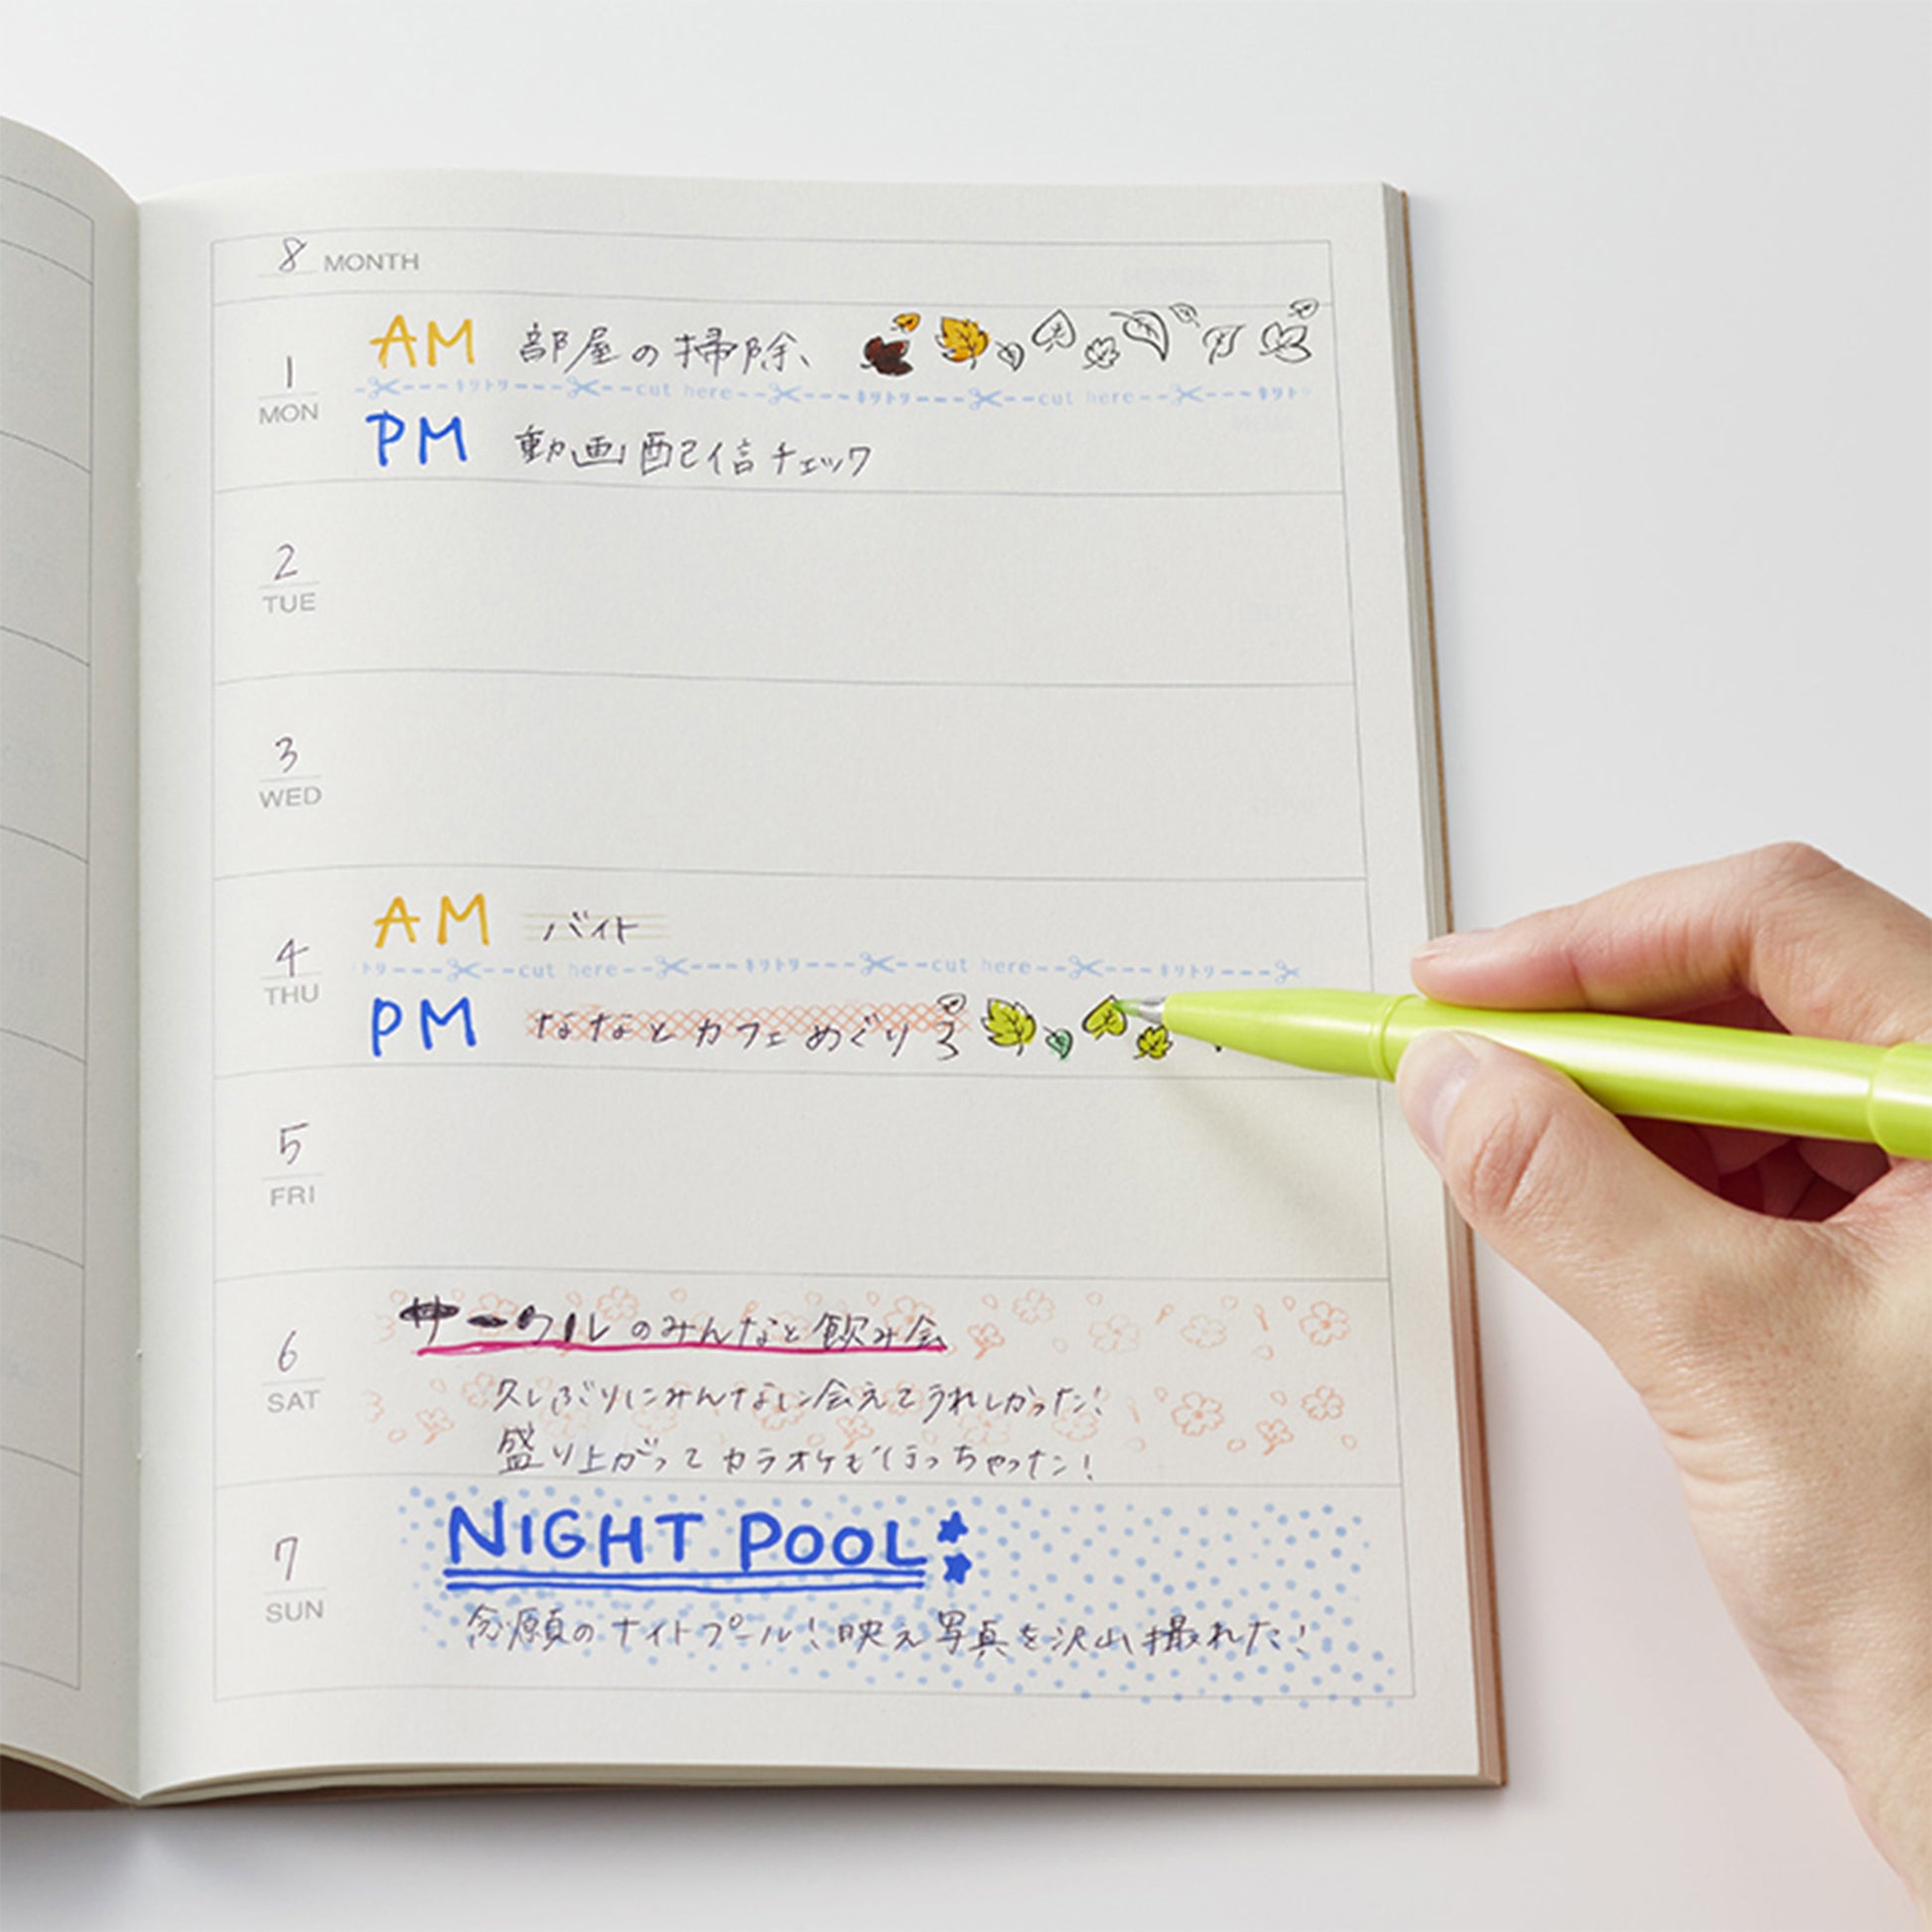 8 MONTH
1
MON
AM 部屋の掃除、
キリトリ cut here キリトリ cut here キリトリ
PM 動画配信チェック
2
TUE
3
WED
4
THU
AM バイト
トリ cut here キリトリ cut here キリトリ
PM ななとカフェめぐり
5
FRI
6
SAT
サークルのみんなと飲み会
久しぶりにみんなに会えてうれしかった!
盛り上がってカラオケも行っちゃった!
7
SUN
NIGHT POOL
念願のナイトプール!映え写真を沢山撮れた!